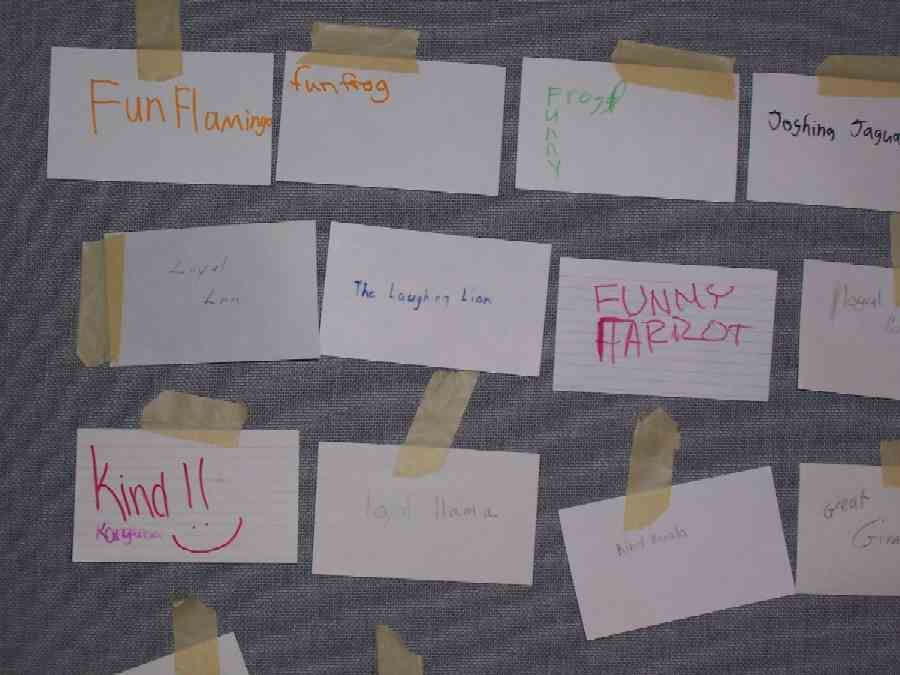 Fun Flamingo
funfrog
Frog
Funny
Joshing Jagua
Loyal
Lion
The Laughing Lion
FUNNY
PARROT
Kind !!
Kangaroo
loyal llama
Kind Koala
Great
Gira